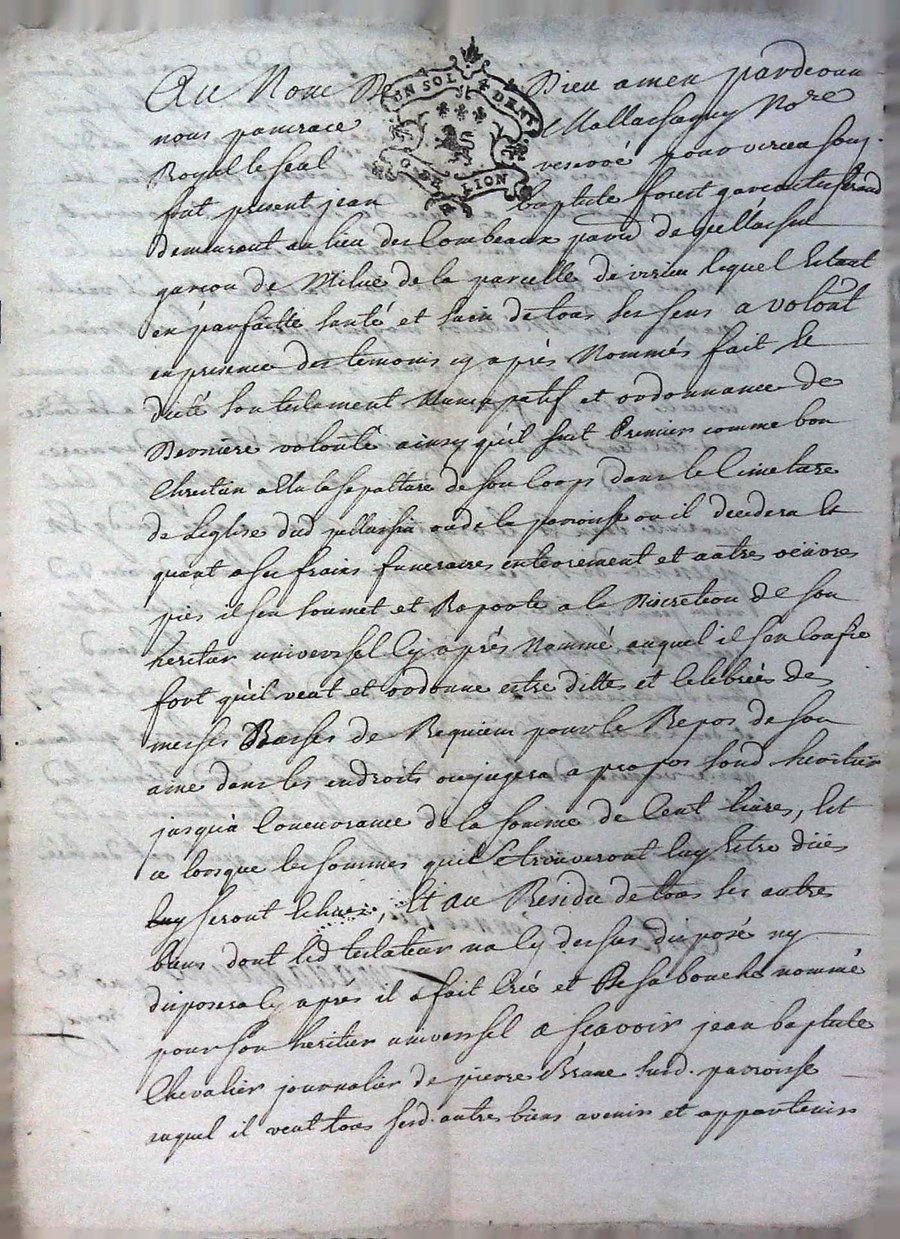 Au Nom De Dieu amen pardevan
nous pancrace Mallassagny No.re
Royal le seul reservé pour virieu sousig.
fut present jean baptiste forest garcon tisserand
demeurant au lieu des Combeaux paroi.e de pellassin
garcon de Milice de la parcelle de virieu lequel Estant
en parfaitte santé et sain de tous ses sens a volont
en presence des temoins cy après Nommés fait Et
dicté son testament Nuncupatif et ordonnance de
Derniere volonté ainsy quil suit Premier comme bon
Chretien a Elu le sepulture de son Corps dans le Cimetiere
de Leglise dud pellassin ou de la paroisse ou il decedera Et
quant a ses fraix funeraires enterrement et autres oeuvres
pies il sen soumet et Raporte a la Discretion de son
heritier universel Cy après Nommé auquel il sen Confie
fort quil veut et ordonne estre dittes et Celebrées de
messes Basses de Requiem pour le Repos de son
ame dans les endroits ou jugera a propos sond heritier
jusqua Concurrance de la somme de Cent livres, Et
ce lorsque les sommes qui se trouveront luy Estre düe
luy seront Echües, Et au Residu de tous ses autres
biens dont led testateur na Cy dessus disposé ny
disposera Cy apres il a fait Créé et De sa bouche nommé
pour son heritier universel a scavoir jean baptiste
Chevalier journalier de pierre Brane susd. paroisse
auquel il veut tous sesd. autres biens avenir et appartenir
UN SOL 4 DEN
G DE LION